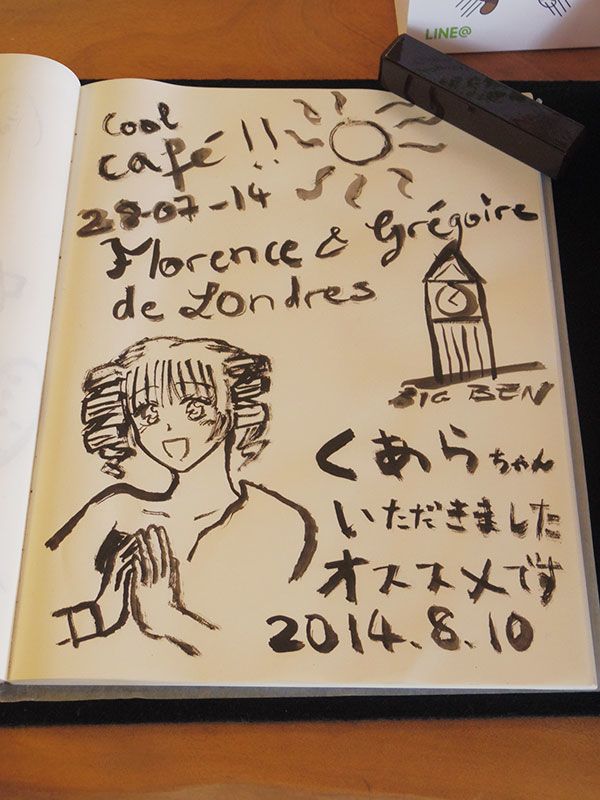 LINE@
Cool
café!!
28-07-14
Florence & Grégoire
de Londres
BIG BEN
くあらちゃん
いただきました
オススメです
2014.8.10